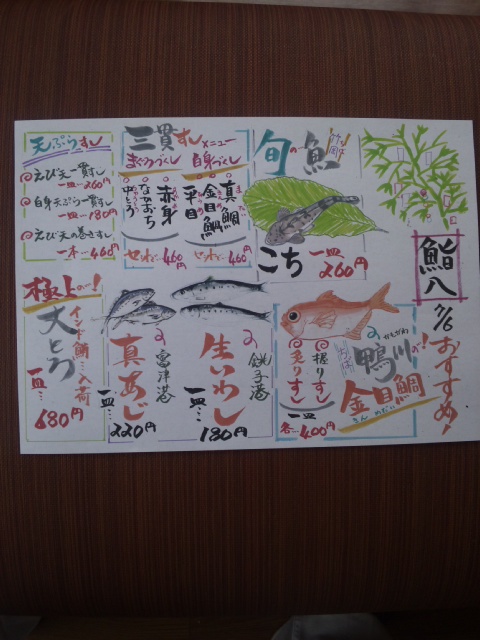 鮨八
7/6
おすすめ!
旬の鮨
こち
一皿…260円
三貫すしメニュー
まぐろづくし
赤身
なかおち
中とろ
セットで…460円
白身づくし
真鯛
金目鯛
平目
セットで…460円
天ぷらすし
えび天一貫すし
一皿…260円
白身天ぷら一貫すし
一皿…180円
えび天の巻きすし
一本…460円
鴨川の!
かもがわ
金目鯛
きんめだい
握りすし
炙りすし
一皿
各…400円
銚子港の
生いわし
一皿…180円
富津港の
真あじ
一皿…220円
極上の!
インド鮪…入荷
大とろ
一皿…680円